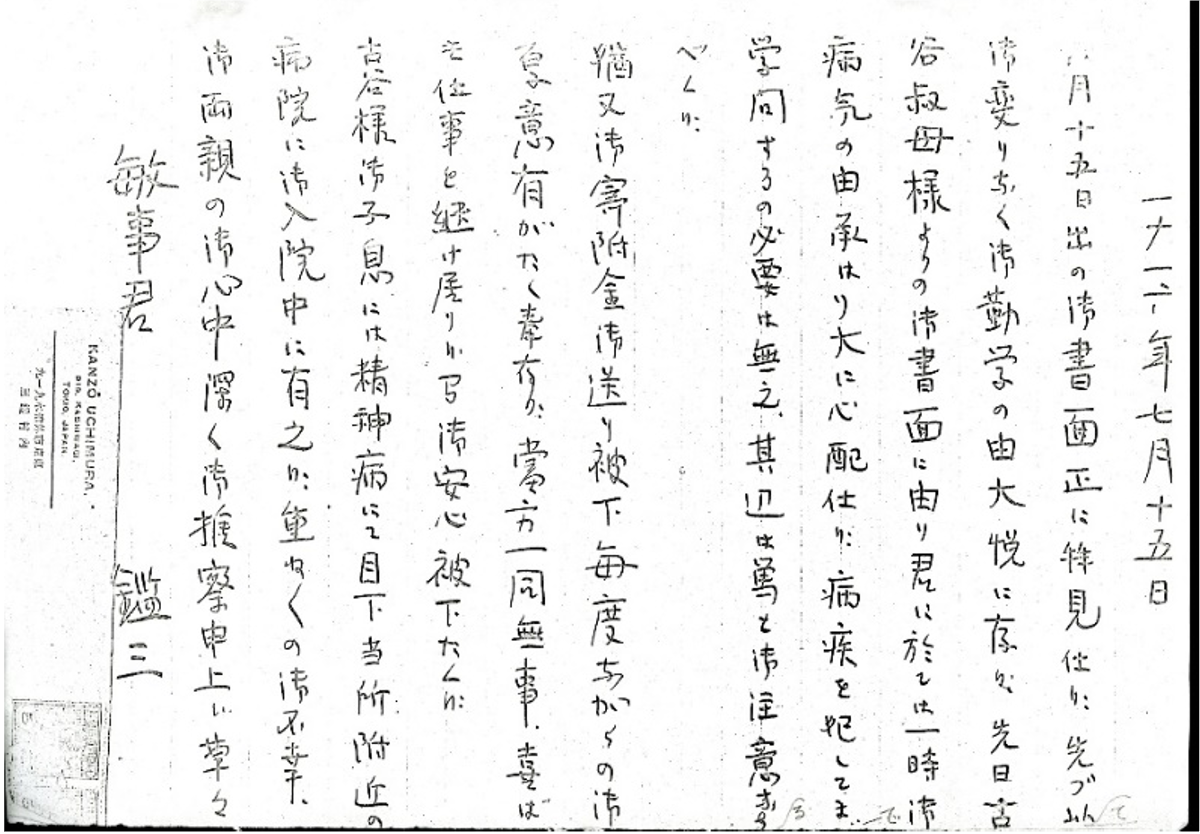 一九一二年七月十五日
六月十五日出の御書面正に拝見仕り候 先づ以て
御変りなく御勤学の由大悦に存候 先日古
谷叔母様よりの御書面に由り君に於ては一時御
病気の由承はり大に心配仕り候 病疾を犯してまで
学問するの必要は無之、其辺は篤と御注意ある
べく候
猶又御寄附金御送り被下毎度ながらの御
厚意有がたく奉存候、當方一同無事、喜ば
を仕事を継け居り候間御安心被下たく候
古谷様御子息には精神病にて目下当所附近の
病院に御入院中に有之候 重ねくの御不幸、
御両親の御心中深く御推察申上候 草々
鑑三
敏事君
KANZŌ UCHIMURA.
TOKIO, JAPAN.